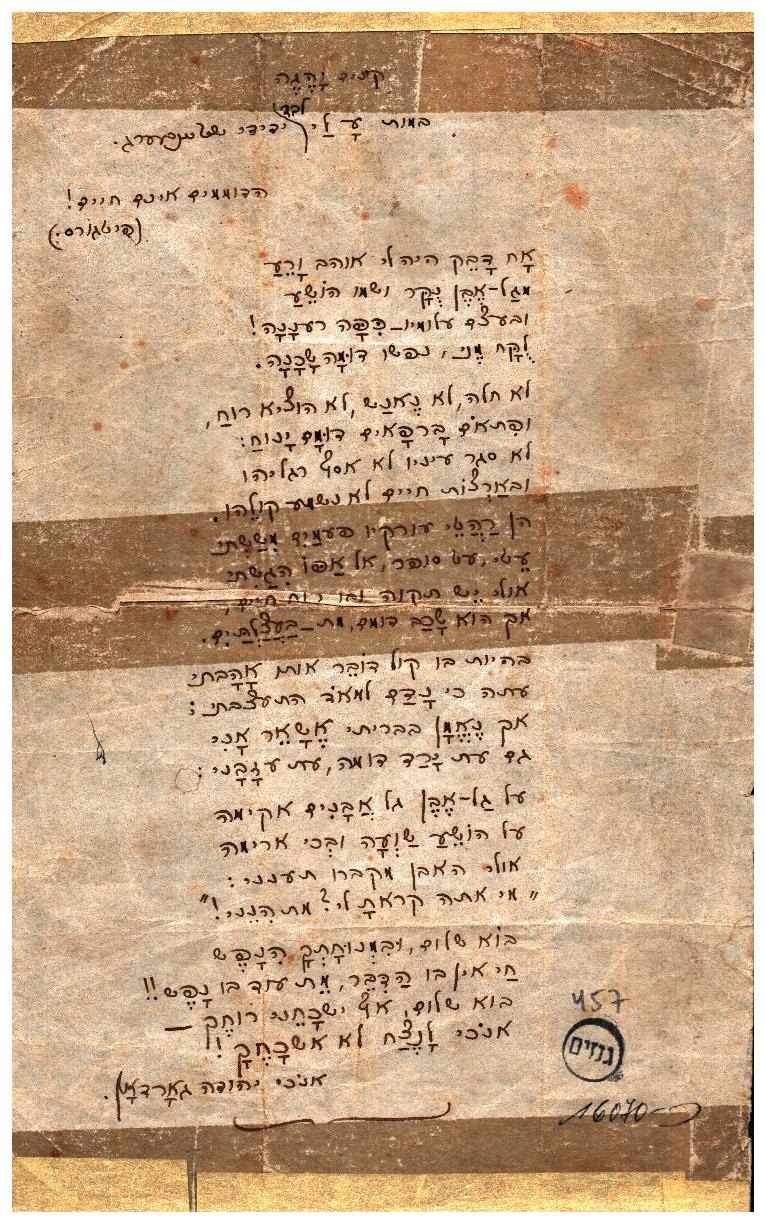 קינים וָהֶגֶה
במות עָלַי לבד ידידי שטיינבערג.
הדוממים אינם חיים!
(פיטגורס.)
אָח דָּבֵק היה לי אוהב וָרֵעַ
מגַל-אֶבֶן נֻקָּר ושמו הוֹשֵׁעַ
ובעצם עלומיו – כִּפָּה רעננָה!
לֻקָּח מֶנִּי, נפשו דוּמָה שָׁכָנָה.
לא חלה, לא נֶאנַשׁ, לא הוציא רוחַ,
ופתאֹם בָּרפָאים דוּמָם יָנוּחַ:
לא סגר עיניו לא אסף רגליהו
ובאַרְצוֹת חיים לא נשמע קולֵהו.
הן רַהֲטֵי עורקיו פעמַיִם מִשַּׁשְׁתִּי
עֵטִי, עט סופר, אל אַפּוֹ הִגַּשְׁתִּי
אולי יֵש תקוה ובו רוח חיים,
אך הוא שָׁכַב דומם, מת – בַּעֲצַלְתַּיִם.
בהיות בו קול דוֹבֵר אותו אָהָבתי
עתה כי נָדַם למאֹד התעצבתי;
אך נֶאֱמָן בבריתי אֶשָּׁאֵר אָנִי
גם עת יָרַד דומה, עת עזָבָני;
על גַל-אֶבֶן גל אֲבָנִים אקימה
על הוֹשֵׁעַ שַׁוְעָה ובְכי ארימה
אולי האבן מקברו תענני:
"מי אתה קראתָ לי? מת הִנֵּנִי!"
בוֹא שלום, וּבִמְנוּחָתְךָ הִנָּפֶשׁ
חַי אין בו הַדִּבֵּר, מֵת עוד בו נָפֶשׁ!!
בוא שלום, אף ישכָּחֵני רוחֶךָ –
אנֹכי לָנֶצַח לא אשכָּחֶךָ!
אנֹכי יהודה גאָרדאָן.
457
גנזים
16070